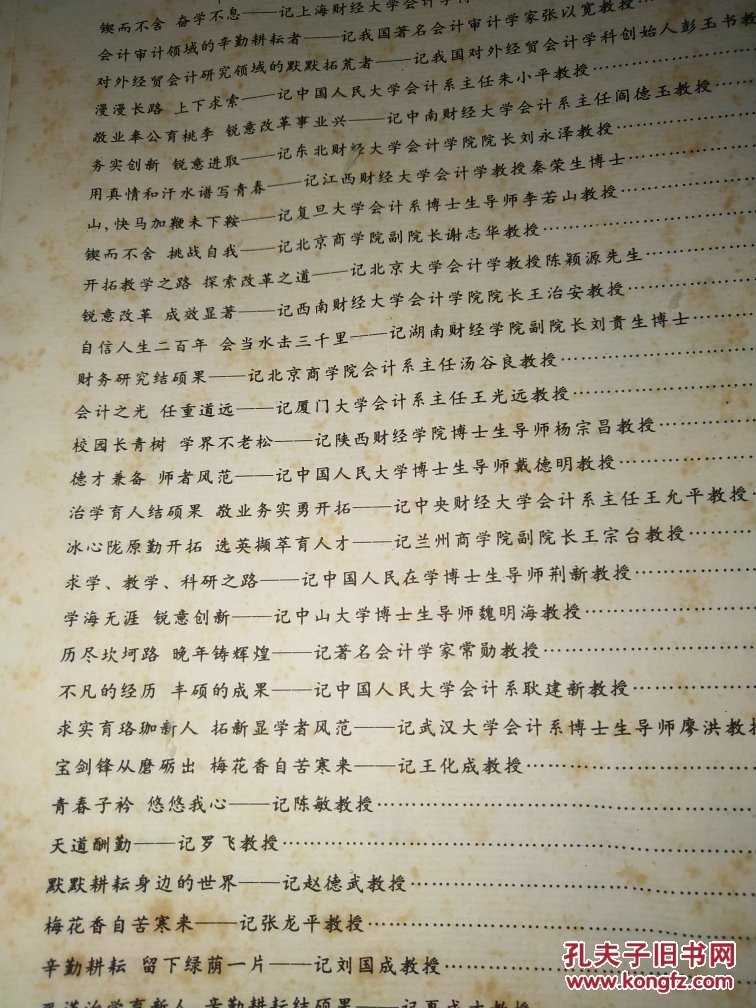 锲而不舍 奋学不息——记上海财经大学会计学
会计审计领域的辛勤耕耘者——记我国著名会计审计学家张以宽教授
对外经贸会计研究领域的默默拓荒者——记我国对外经贸会计学科创始人彭玉书教
漫漫长路 上下求索——记中国人民大学会计系主任朱小平教授
敬业奉公育桃李 锐意改革事业兴——记中南财经大学会计系主任阎德玉教授
务实创新 锐意进取——记东北财经大学会计学院院长刘永泽教授
用真情和汗水谱写青春——记江西财经大学会计学教授秦荣生博士
山,快马加鞭未下鞍——记复旦大学会计系博士生导师李若山教授
锲而不舍 挑战自我——记北京商学院副院长谢志华教授
开拓教学之路 探索改革之道——记北京大学会计学教授陈颖源先生
锐意改革 成效显著——记西南财经大学会计学院院长王治安教授
自信人生二百年 会当水击三千里——记湖南财经学院副院长刘贵生博士
财务研究结硕果——记北京商学院会计系主任汤谷良教授
会计之光 任重道远——记厦门大学会计系主任王光远教授
校园长青树 学界不老松——记陕西财经学院博士生导师杨宗昌教授
德才兼备 师者风范——记中国人民大学博士生导师戴德明教授
治学育人结硕果 敬业务实勇开拓——记中央财经大学会计系主任王允平教授
冰心陇原勤开拓 选英撷萃育人才——记兰州商学院副院长王宗台教授
求学、教学、科研之路——记中国人民在学博士生导师荆新教授
学海无涯 锐意创新——记中山大学博士生导师魏明海教授
历尽坎坷路 晚年铸辉煌——记著名会计学家常勋教授
不凡的经历 丰硕的成果——记中国人民大学会计系耿建新教授
求实育珞珈新人 拓新显学者风范——记武汉大学会计系博士生导师廖洪教授
宝剑锋从磨砺出 梅花香自苦寒来——记王化成教授
青春子衿 悠悠我心——记陈敏教授
天道酬勤——记罗飞教授
默默耕耘身边的世界——记赵德武教授
梅花香自苦寒来——记张龙平教授
辛勤耕耘 留下绿荫一片——记刘国成教授
治学育新人 辛勤耕耘结硕果——记夏成才教授
孔夫子旧书网
www.kongfz.com